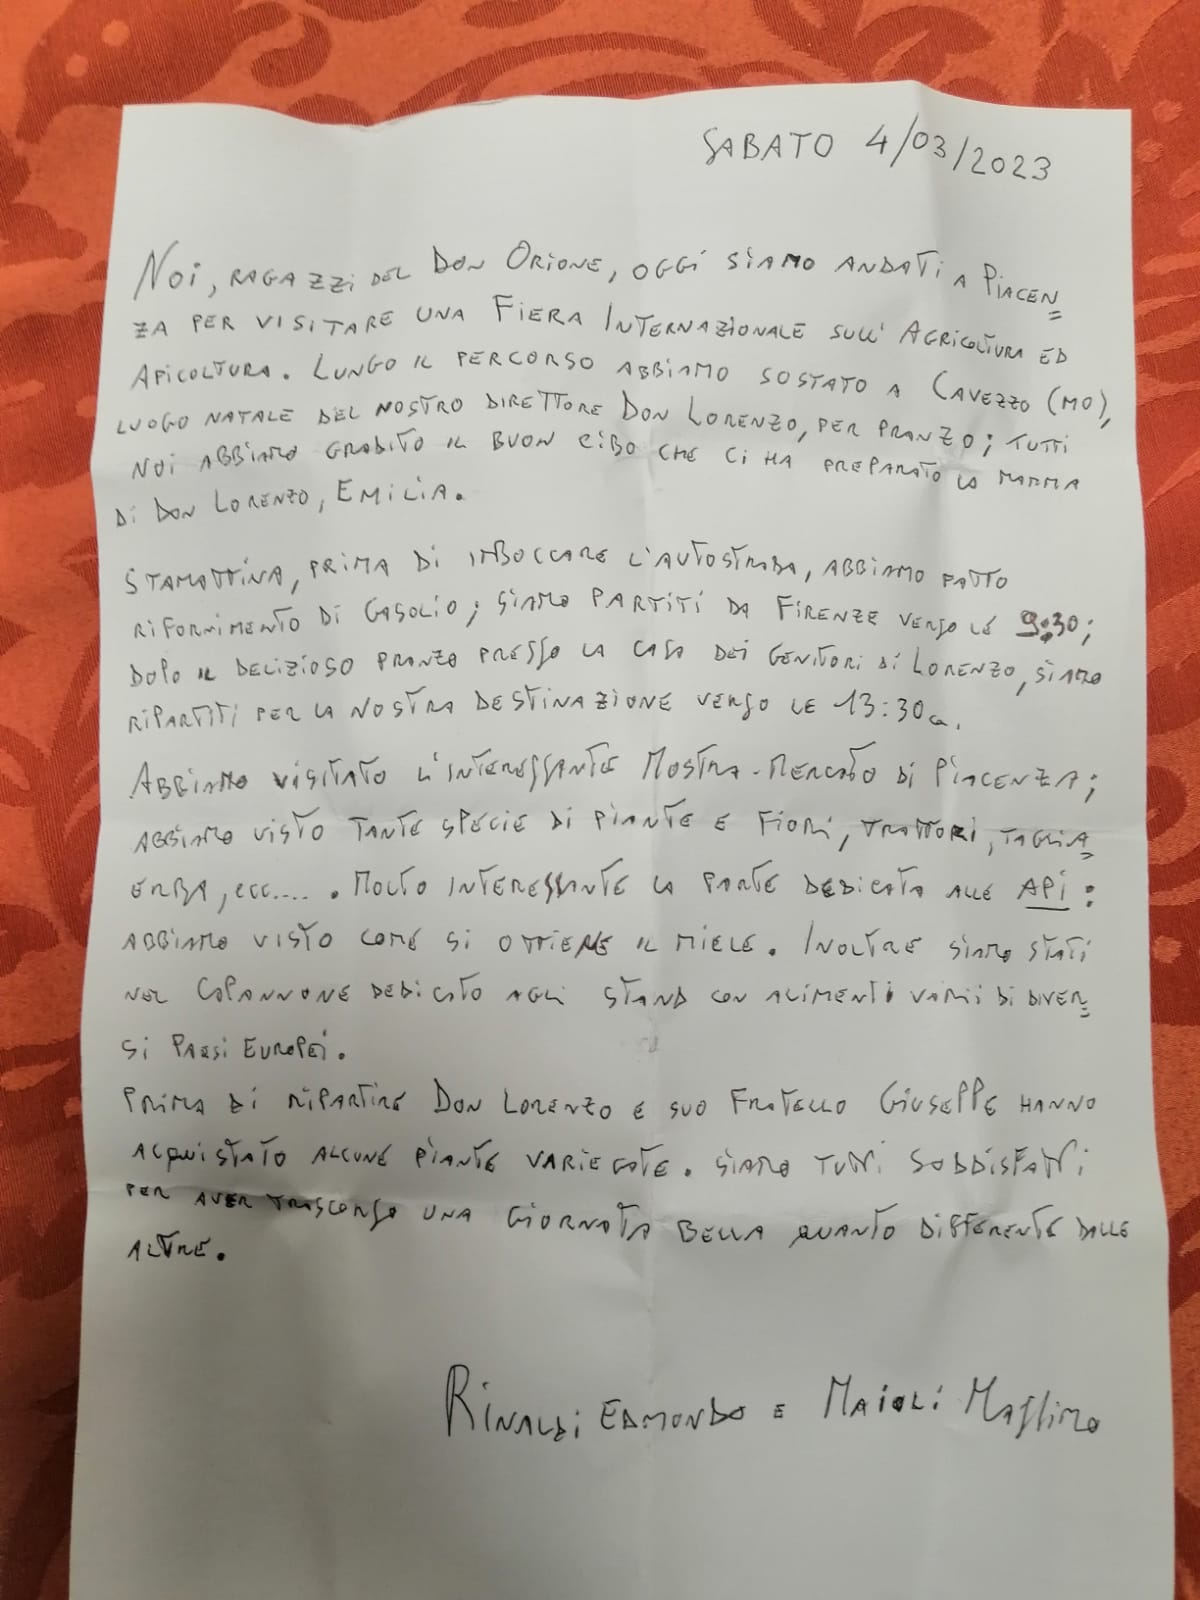 SABATO 4/03/2023
NOI, RAGAZZI DEL DON ORIONE, OGGI SIAMO ANDATI A PIACEN=
ZA PER VISITARE UNA FIERA INTERNAZIONALE SULL'AGRICOLTURA ED
APICOLTURA. LUNGO IL PERCORSO ABBIAMO SOSTATO A CAVEZZO (MO),
LUOGO NATALE DEL NOSTRO DIRETTORE DON LORENZO, PER PRANZO; TUTTI
NOI ABBIAMO GRADITO IL BUON CIBO CHE CI HA PREPARATO LA MAMMA
DI DON LORENZO, EMILIA.
STAMATTINA, PRIMA DI IMBOCCARE L'AUTOSTRADA, ABBIAMO FATTO
RIFORNIMENTO DI GASOLIO; SIAMO PARTITI DA FIRENZE VERSO LE 9:30;
DOPO IL DELIZIOSO PRANZO PRESSO LA CASA DEI GENITORI DI LORENZO, SIAMO
RIPARTITI PER LA NOSTRA DESTINAZIONE VERSO LE 13:30 ca.
ABBIAMO VISITATO L'INTERESSANTE MOSTRA-MERCATO DI PIACENZA;
ABBIAMO VISTO TANTE SPECIE DI PIANTE E FIORI, TRATTORI, TAGLIA=
ERBA, ecc..... . MOLTO INTERESSANTE LA PARTE DEDICATA ALLE API:
ABBIAMO VISTO COME SI OTTIENE IL MIELE. INOLTRE SIAMO STATI
NEL CAPANNONE DEDICATO AGLI STAND CON ALIMENTI VARII DI DIVER=
SI PAESI EUROPEI.
PRIMA DI RIPARTIRE DON LORENZO E SUO FRATELLO GIUSEPPE HANNO
ACQUISTATO ALCUNE PIANTE VARIEGATE. SIAMO TUTTI SODDISFATTI
PER AVER TRASCORSO UNA GIORNATA BELLA QUANTO DIFFERENTE DALLE
ALTRE.
RINALDI EDMONDO E MAIOLI MASSIMO